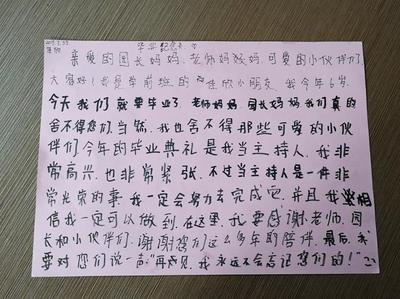 毕业纪念
亲爱的园长妈妈、老师妈妈、可爱的小伙伴们,
大家好!我是学前班的佳欣小朋友,我今年6岁。
今天我们就要毕业了,老师妈妈,园长妈妈我们真的
舍不得您们,当然,我也舍不得那些可爱的小伙
伴们今年的毕业典礼是我当主持人,我非
常高兴,也非常紧张,不过当主持人是一件非
常光荣的事,我一定会努力去完成它,并且我相
信我一定可以做到,在这里,我要感谢老师、园
长和小伙伴们,谢谢您们这么多年的陪伴,最后,我
要对您们说一声:“再见,我永远不会忘记您们的!”